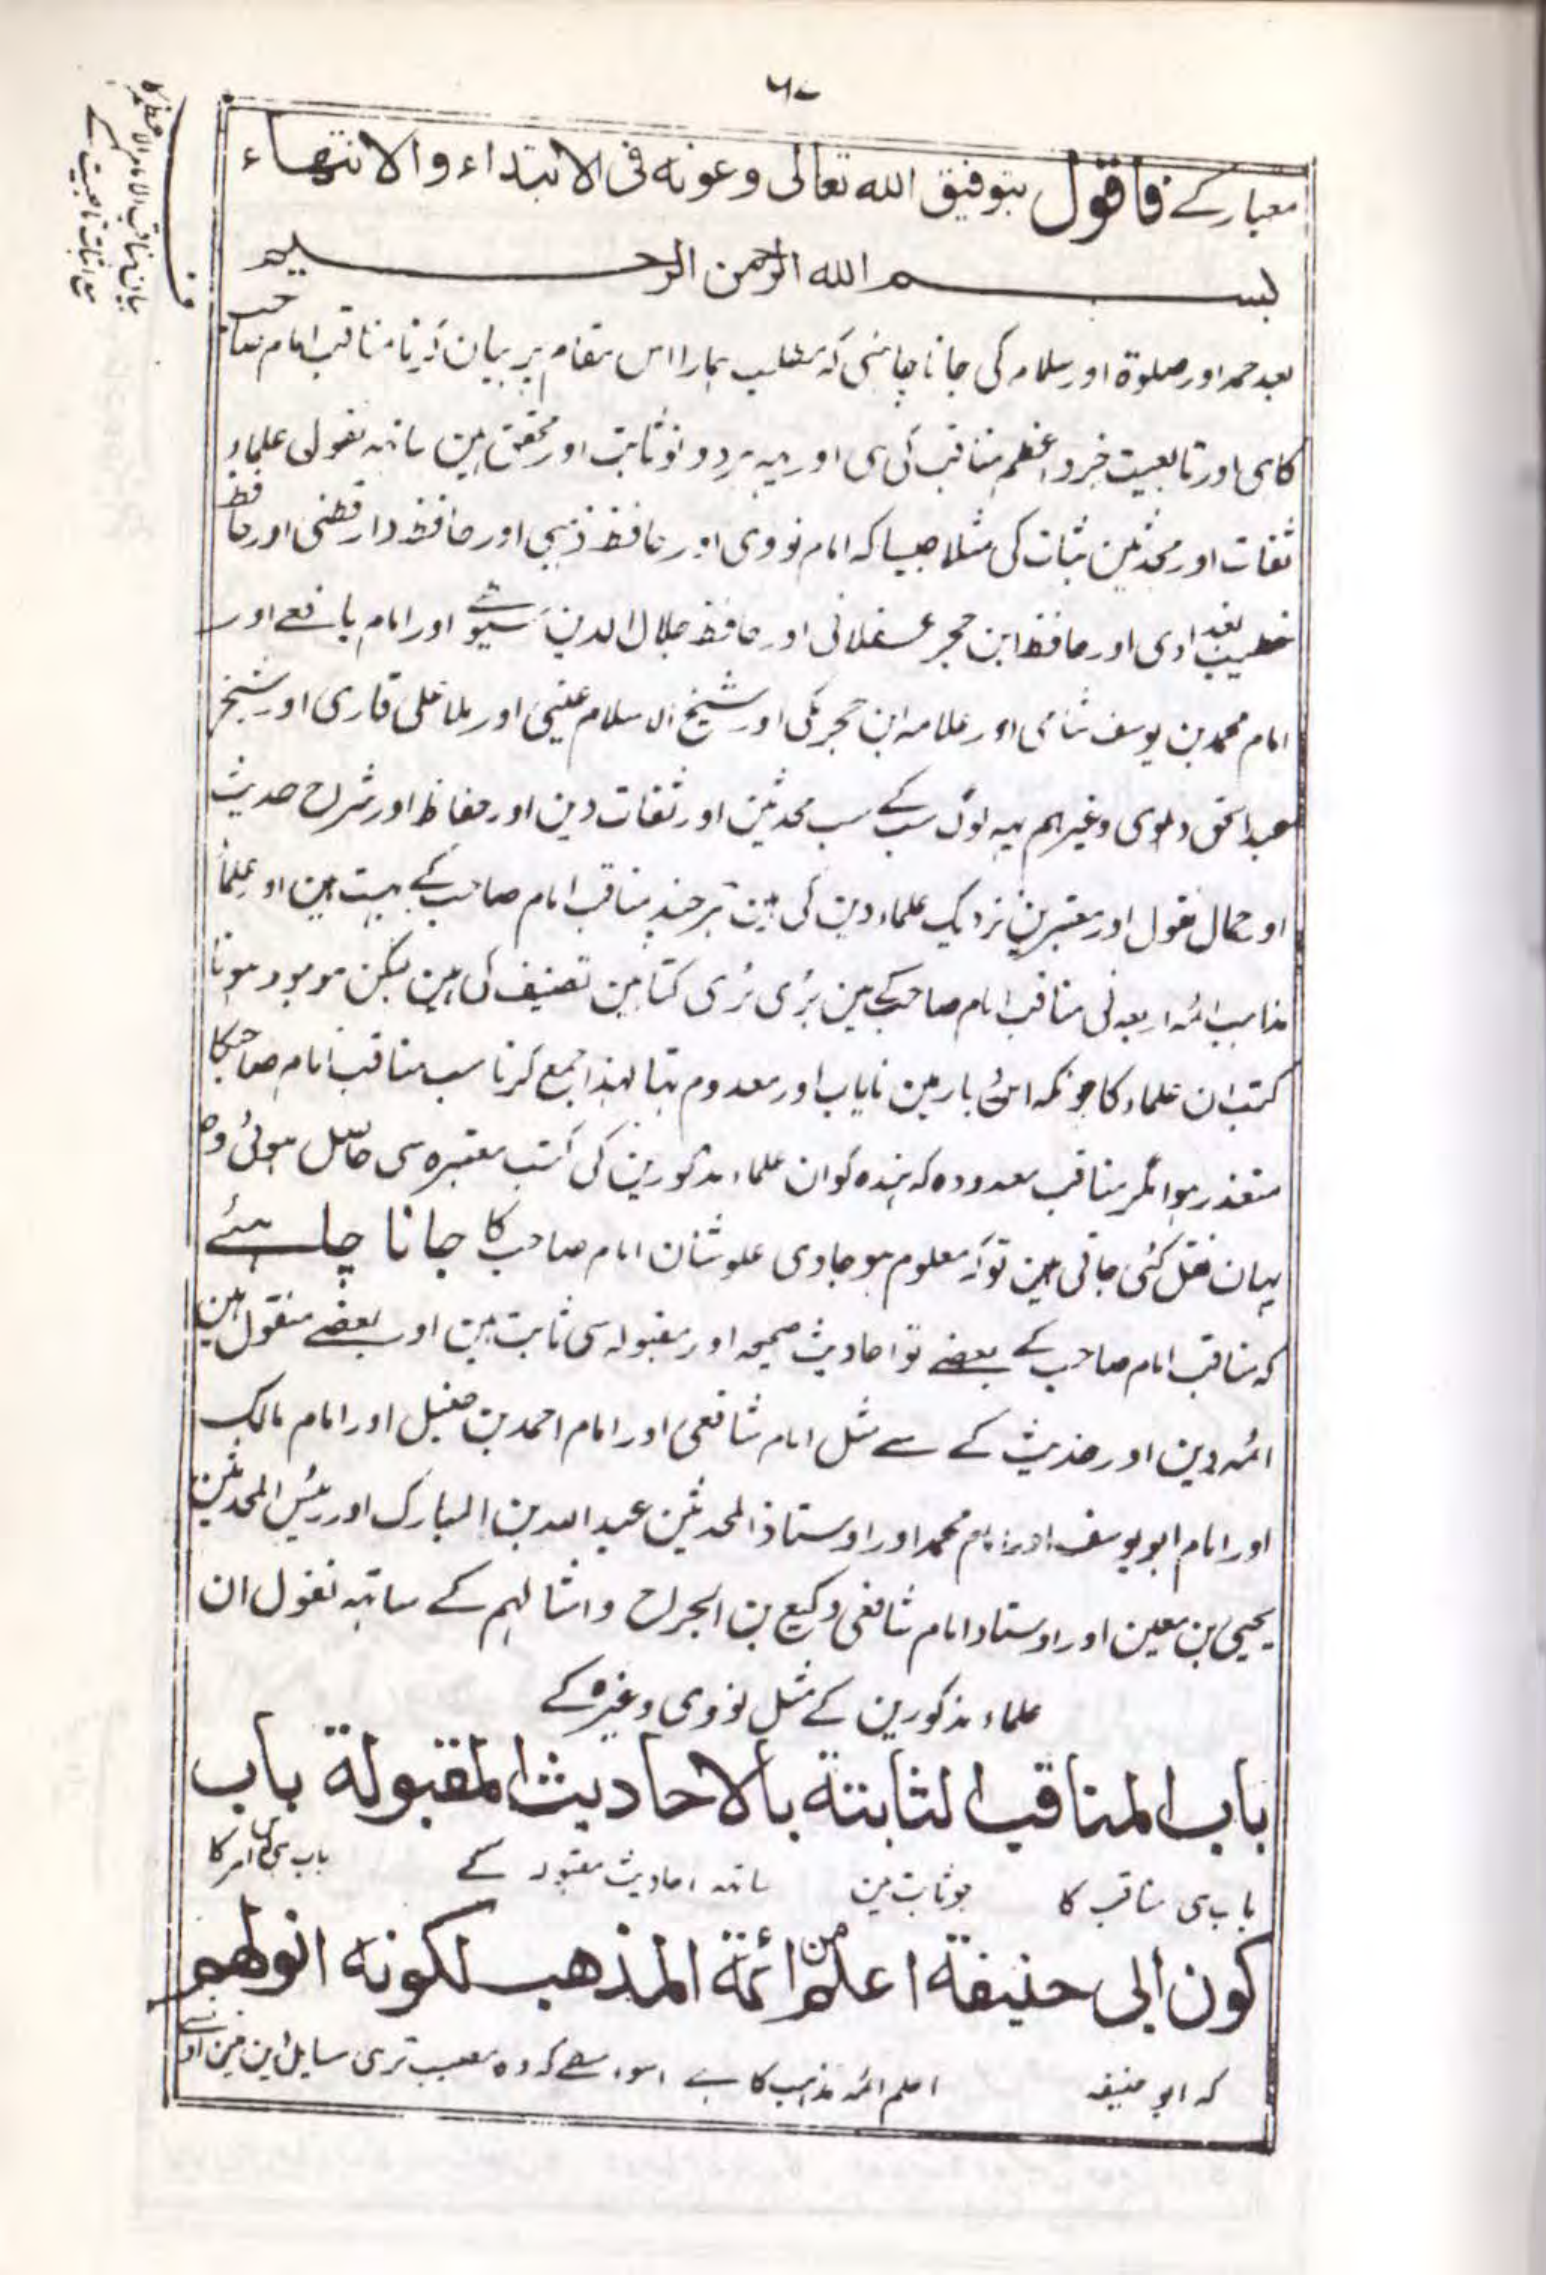 ٦٧
بیان مناقب الامام الاعظم کا
مع اثبات تابعیت کے
ف
معیار کے فاقول بتوفیق الله تعالی وعونه فی الابتداء والانتهاء
بسم الله الرحمن الرحیم
بعد حمد اور صلوۃ اور سلام کی جانا چاہئی کہ مطلب ہمارا اس مقام پر بیان کرنا مناقب امام صاحب
کا ہی اور تابعیت جزء اعظم مناقب کی ہی اور یہہ ہر دو تو ثابت اور محقق ہین ساتہہ نقول علماء
ثقات اور محدثین ثبات کی مثلا جیسا کہ امام نووی اور حافظ ذہبی اور حافظ دارقطنی اور حافظ
خطیب بغدادی اور حافظ ابن حجر عسقلانی اور حافظ جلال الدین سیوطی اور امام یافعے اور
امام محمد بن یوسف شامی اور علامہ ابن حجر مکی اور شیخ الاسلام عینی اور ملا علی قاری اور شیخ
عبد الحق دہلوی وغیرہم یہہ لوگ سب کے سب محدثین اور ثقات دین اور حفاظ اور شراح حدیث
اور نقول اور معتبرین نزدیک علماء دین کی ہین ہر چند مناقب امام صاحب کے بہت ہین اور علماء
مذاہب ائمہ اربعہ نی مناقب امام صاحب کے مین بڑی بڑی کتابین تصنیف کی ہین لیکن موجود ہونا
کتب ان علماء کا چونکہ اس بار مین نایاب اور معدوم تہا لہذا جمع کرنا سب مناقب امام صاحب کا
متعذر ہوا مگر مناقب معدودہ کہ بندہ کو ان علماء مذکورین کی کتب معتبرہ سی حاصل ہوئی وہ
یہان نقل کئی جاتی ہین تو کہ معلوم ہو جاوی علو شان امام صاحب کا جانا چاہئے
کہ مناقب امام صاحب کے بعضے تو احادیث صحیحہ اور مقبولہ سی ثابت ہین اور بعضے منقول ہین
ائمہ دین اور حدیث کے سے مثل امام شافعی اور امام احمد بن حنبل اور امام مالک
اور امام ابو یوسف اور امام محمد اور اوستاذ المحدثین عبد اللہ بن المبارک اور رئیس المحدثین
یحیی بن معین اور اوستاد امام شافعی وکیع بن الجراح وامثالہم کے ساتہہ نقول ان
علماء مذکورین کے مثل نووی وغیرہ کے
باب المناقب الثابتة بالاحادیث المقبولة باب
باب ہی مناقب کا جو ثابت ہین ساتہہ احادیث مقبولہ کے باب ہی اس امر کا
کون ابی حنیفة اعلم من ائمة المذهب لکونه
کہ ابو حنیفہ اعلم ائمہ مذہب کا ہے اسواسطے کہ وہ مصیب تر ہی مسایل دین مین